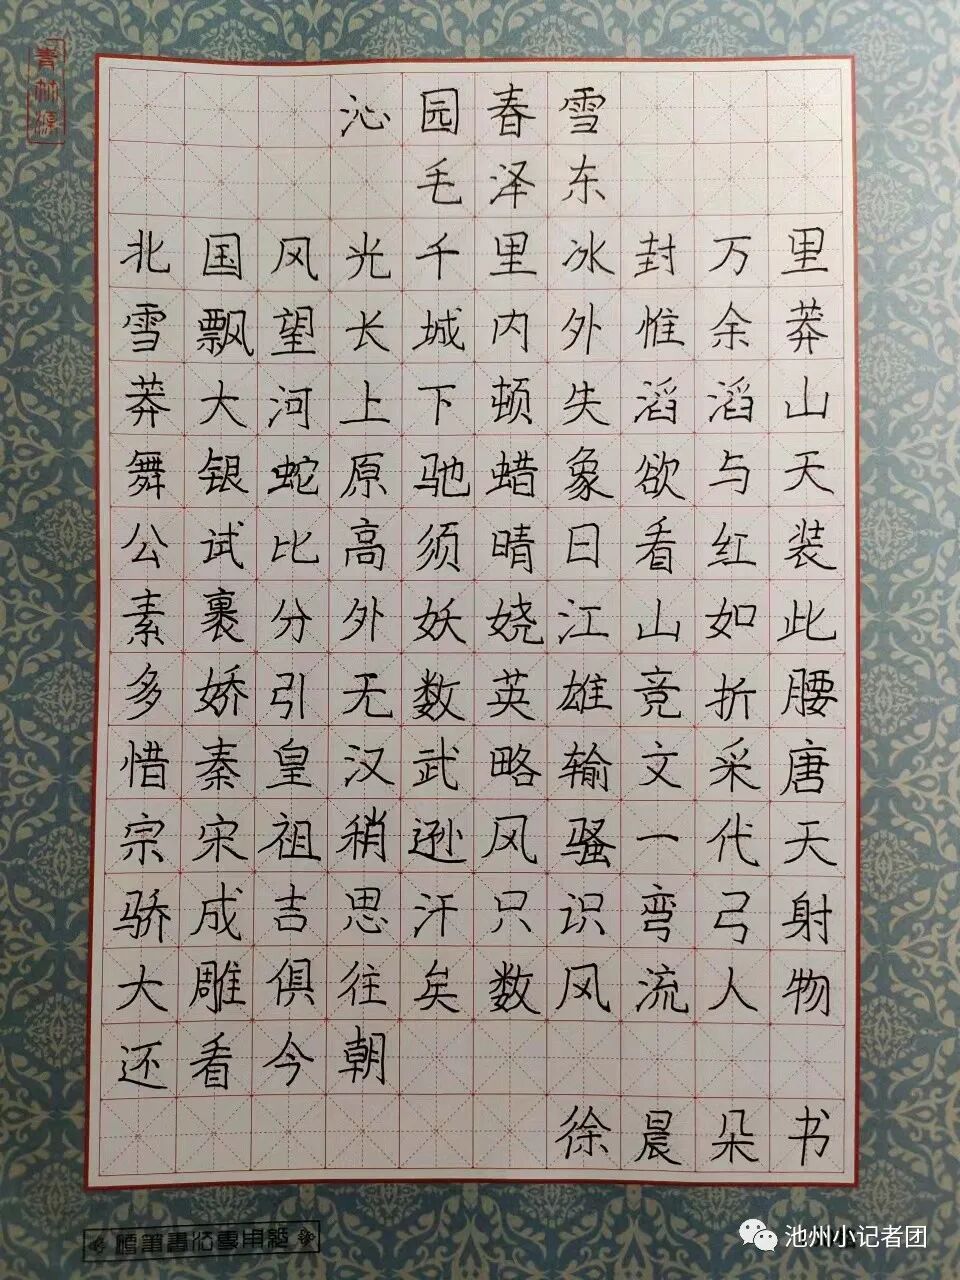 沁园春雪
毛泽东
北国风光千里冰封万里
雪飘望长城内外惟余莽
莽大河上下顿失滔滔山
舞银蛇原驰蜡象欲与天
公试比高须晴日看红装
素裹分外妖娆江山如此
多娇引无数英雄竞折腰
惜秦皇汉武略输文采唐
宗宋祖稍逊风骚一代天
骄成吉思汗只识弯弓射
大雕俱往矣数风流人物
还看今朝
徐晨朵书
青林源
硬笔书法专用纸
池州小记者团